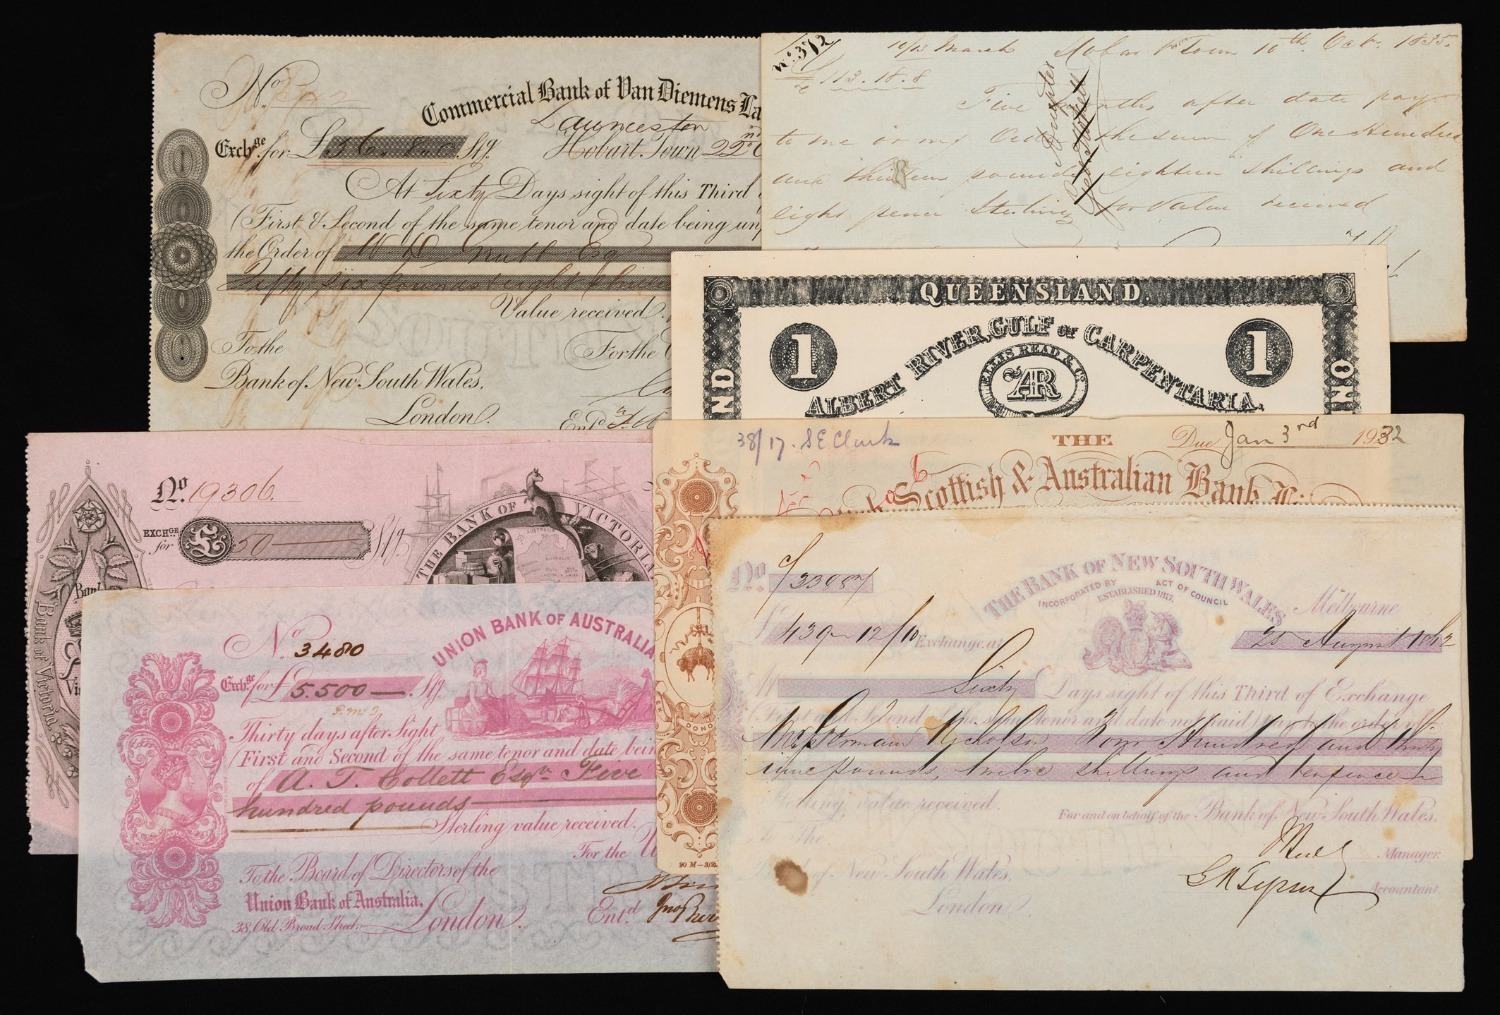 No. 
Commercial Bank of Van Diemens La
Launceston
Exchge. for £56. 8. 0. Stg. Hobart Town 22nd
At Sixty Days sight of this Third
(First & Second of the same tenor and date being unp
the Order of
fifty six pounds eight
Value received.
To the
For the
Bank of New South Wales,
London.
Entd.
No. 372
10/13 March Hobart Town 10th Oct. 1835.
£113.18.8
Five months after date pay
to me or my Order the sum of One hundred
and thirteen pounds eighteen shillings and
eight pence Sterling for value received
QUEENSLAND.
1
1
ALBERT RIVER, GULF OF CARPENTARIA.
ELLIS READ & Co
AR
ND
NO
No. 19306.
EXCHGE for £50 Stg
THE BANK OF VICTORIA
Bank of Victoria
38/17. S E Clark
THE
Due Jan 3rd 1932
Scottish & Australian Bank
90 M—3/2
No. 3480
UNION BANK OF AUSTRALIA
Exchge. for £5,500— Stg.
Thirty days after Sight
(First and Second of the same tenor and date bein
of A. T. Collett Esqre Five
hundred pounds
Sterling value received.
For the U
To the Board of Directors of the
Union Bank of Australia.
38, Old Broad Street.
London
Entd
No. 23987
THE BANK OF NEW SOUTH WALES
INCORPORATED BY ACT OF COUNCIL
ESTABLISHED 1817.
Melbourne
£439-12/10 Exchange at
25 August 1862
At Sixty Days sight of this Third of Exchange
First and Second of the same tenor and date not paid) Pay to the order of
Germain Nicholson Four Hundred and thirty
nine pounds, twelve shillings and tenpence
Sterling, value received.
For and on behalf of the Bank of New South Wales.
To the
Bank of New South Wales,
London
Manager.
Accountant